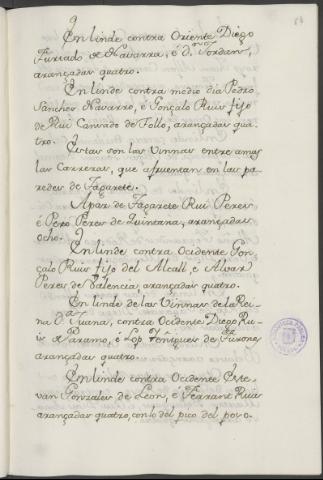 En linde contra Oriente Diego
Furtado de Navarra, é d.ⁿ Jordan,
arançadas quatro.
En linde contra medio dia Pedro
Sanches Navarro, é Gonçalo Ruis fijo
de Rui Conrado de Follo, arançadas qua
tro.
Estas son las Vinnas entre amas
las Carreras, que afruentan en las pa
redes de Taparete.
Apar de Taparete Rui Peres
é Pero Peres de Quintana, arançadas
ocho.
En linde contra Ocidente Gon
çalo Ruis fijo del Alcall, é Alvar
Peres de Palencia, arançadas quatro.
En linde de las Vinnas de la Rei
na D.ª Juana, contra Ocidente Diego Ru
is de Naramo, é Lop Ieniques de Turones
arançadas quatro.
En linde contra Ocidente Este,
van Gonzaleis de Leon, é Ferrant Ruis
arançadas quatro, con lo del pico del povo-